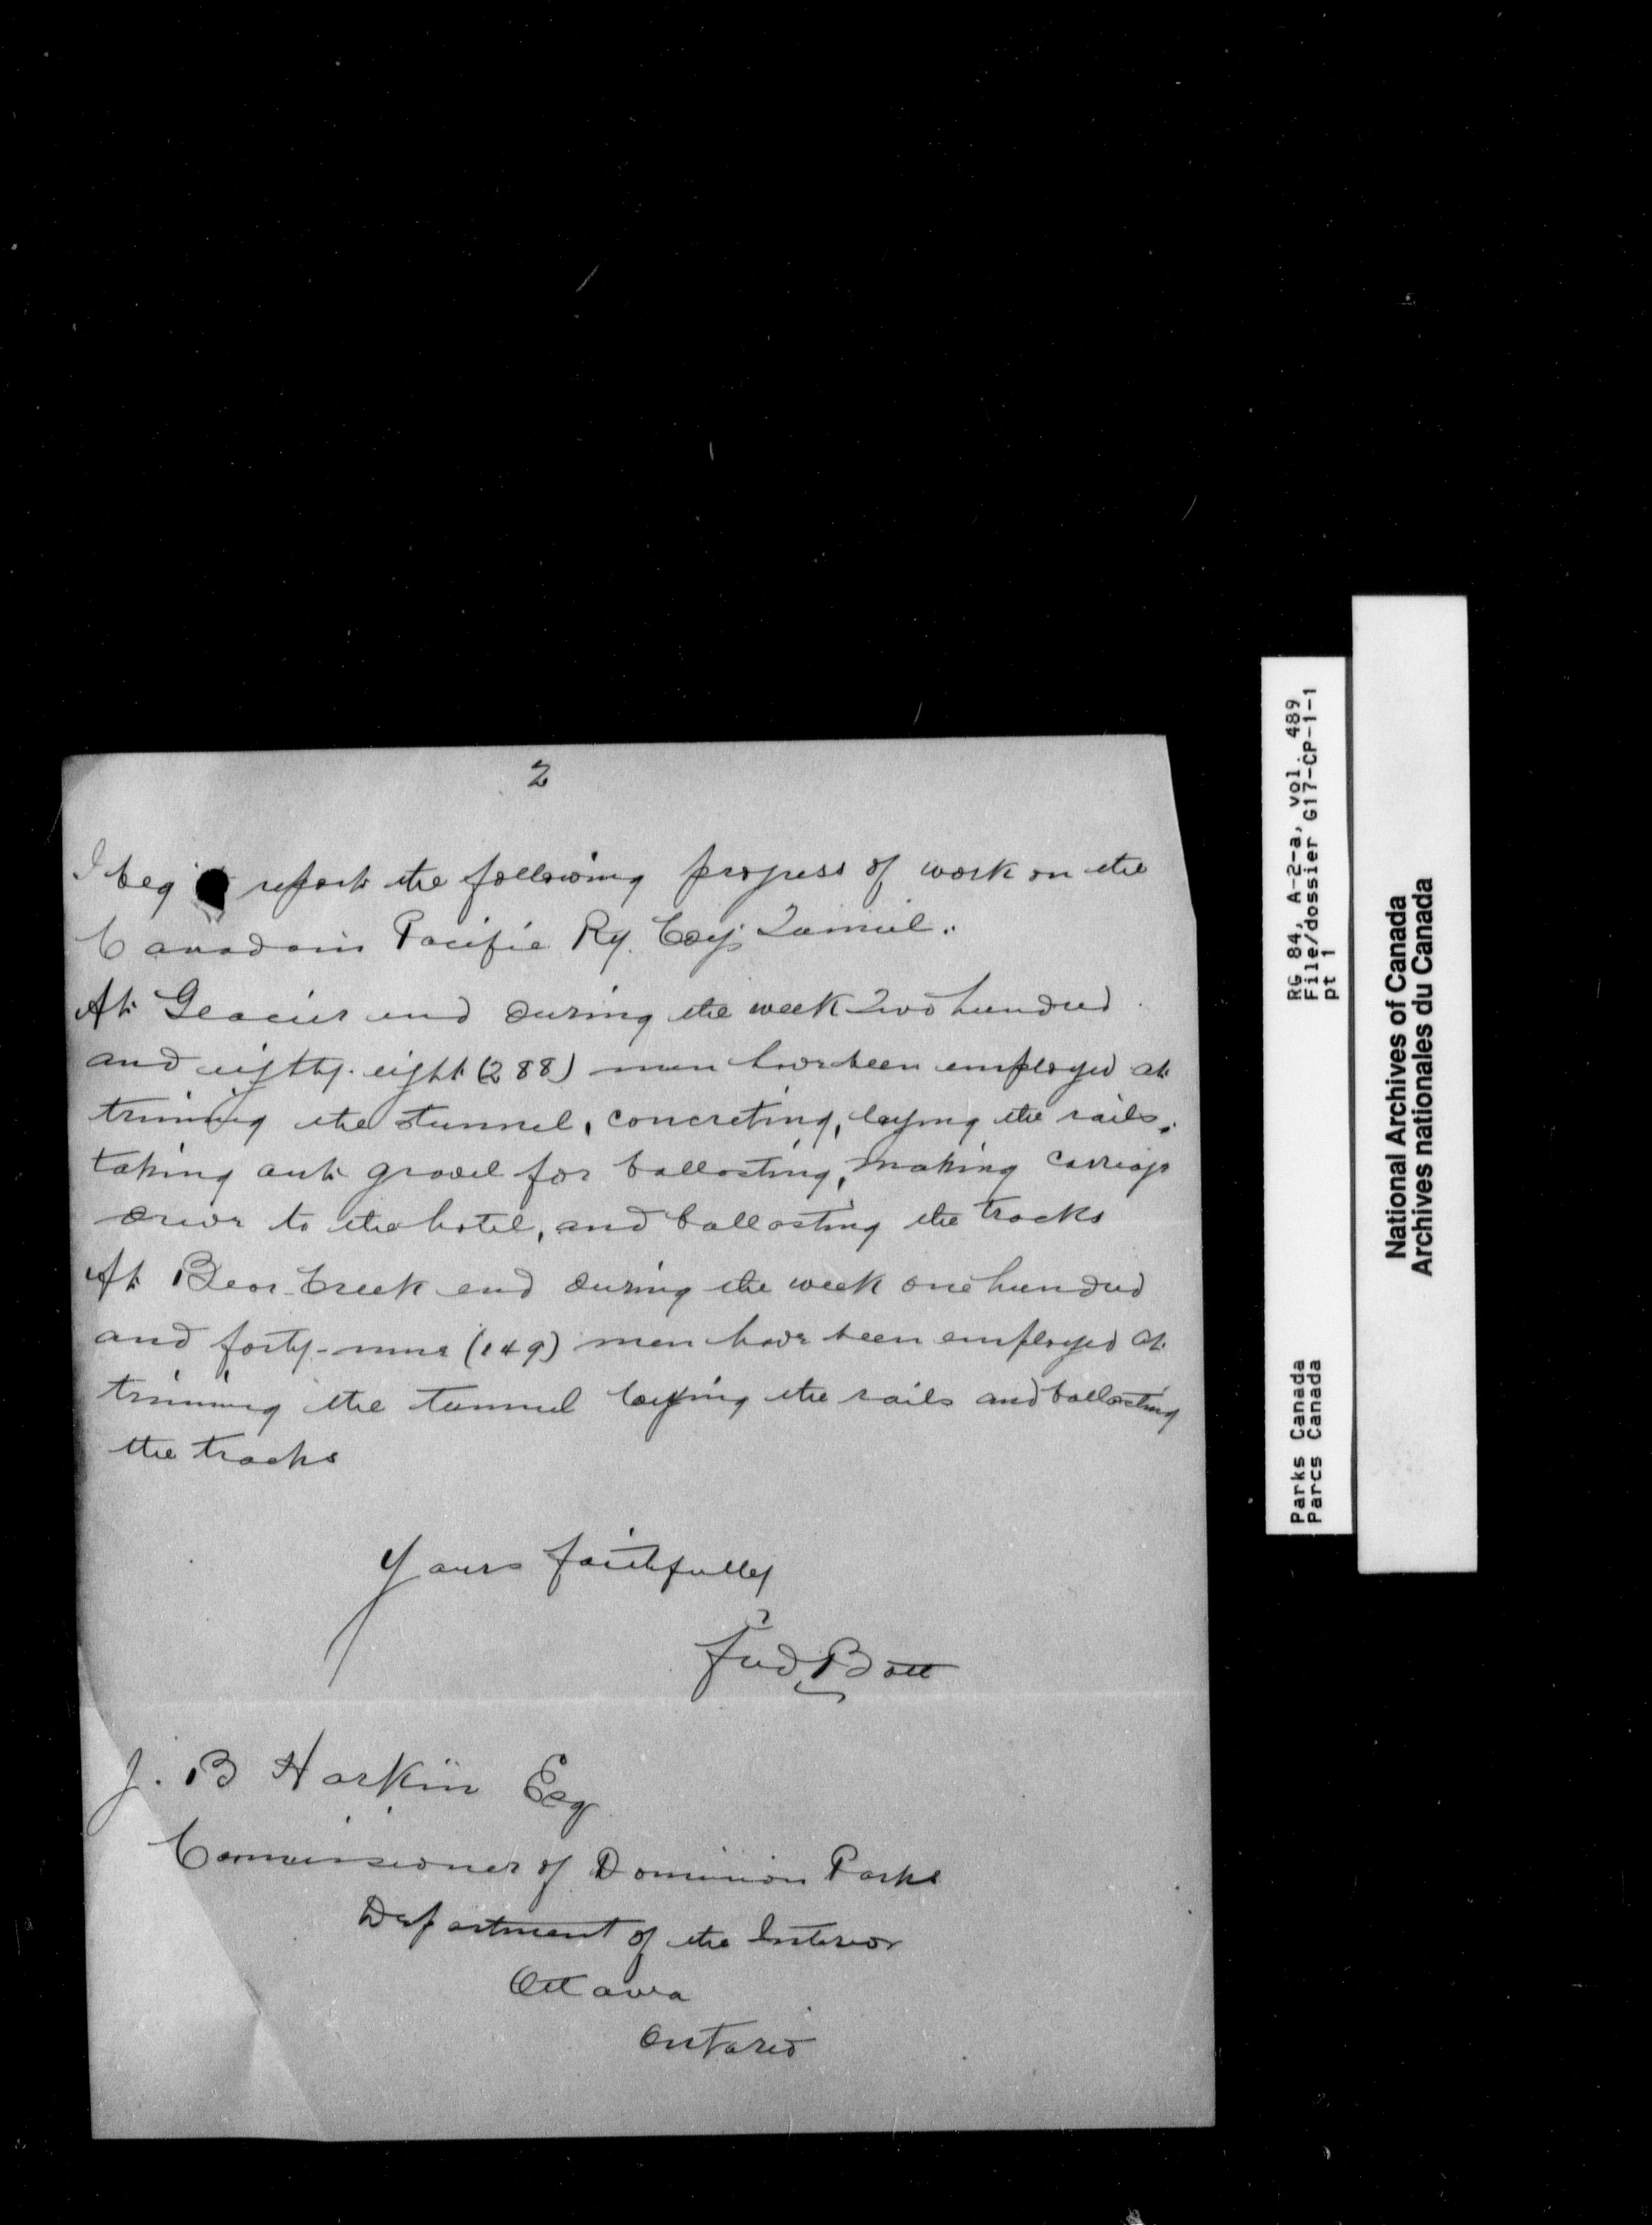 2
I beg report the following progress of work on the
Canadain Pacific Ry. Coy's Tunnel.
At Glacier end during the week Two hundred
and eighty-eight (288) men have been employed at
triming the tunnel, concreting, laying the rails,
taking out gravel for ballasting, making carriage
drive to the hotel, and ballasting the tracks
At Bear Creek end during the week one hundred
and forty-nine (149) men have been employed at
triming the tunnel laying the rails and ballasting
the tracks
Yours faithfully
Fred Bott
J. B Harkin Esq
Commissioner of Dominion Parks
Department of the Interior
Ottawa
Ontario
RG 84, A-2-a, vol. 489
File/dossier G17-CP-1-1
pt 1
Parks Canada
Parcs Canada
National Archives of Canada
Archives nationales du Canada